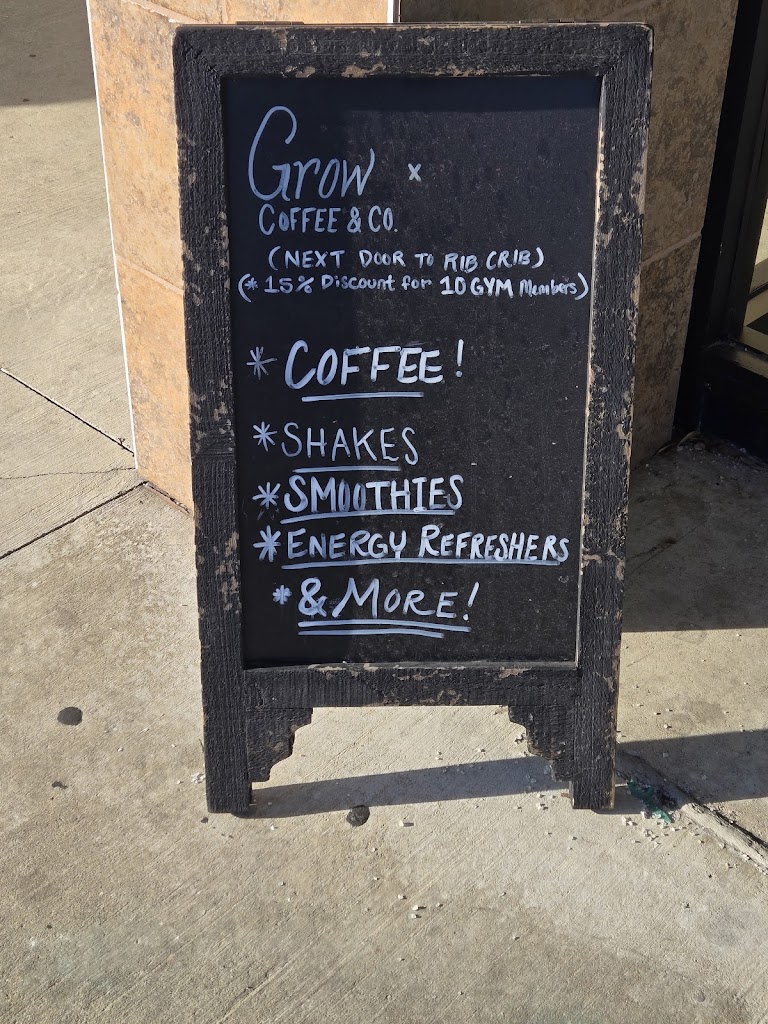 Grow x
COFFEE & CO.
(NEXT DOOR TO RIB CRIB)
(* 15% Discount for 10GYM Members)
* COFFEE!
* SHAKES
* SMOOTHIES
* ENERGY REFRESHERS
* & MORE!